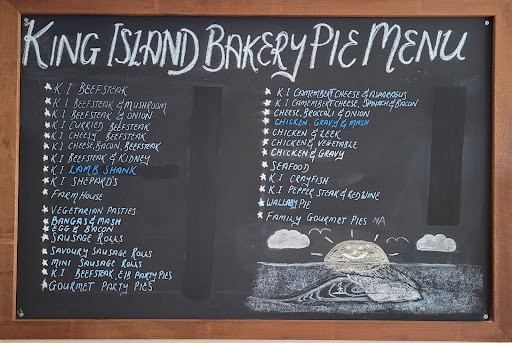 KING ISLAND BAKERY PIE MENU
K I BEEFSTEAK
K I BEEFSTEAK & MUSHROOM
K I BEEFSTEAK & ONION
K I CURRIED BEEFSTEAK
K I CHEESY BEEFSTEAK
K I CHEESE, BACON, BEEFSTEAK
K I BEEFSTEAK & KIDNEY
K I LAMB SHANK
K I SHEPARD'S
FARM HOUSE
VEGETARIAN PASTIES
BANGAS & MASH
EGG & BACON
SAUSAGE ROLLS
SAVOURY SAUSAGE ROLLS
MINI SAUSAGE ROLLS
K.I BEEFSTEAK, E/B PARTY PIES
GOURMET PARTY PIES
K I CAMEMBERT CHEESE & ASPARAGUS
K I CAMEMBERT CHEESE, SPINACH & BACON
CHEESE, BROCCOLI & ONION
CHICKEN, GRAVY & MASH
CHICKEN & LEEK
CHICKEN & VEGETABLE
CHICKEN & GRAVY
SEAFOOD
K.I CRAYFISH
K.I PEPPER STEAK & RED WINE
WALLABY PIE
FAMILY GOURMET PIES NA